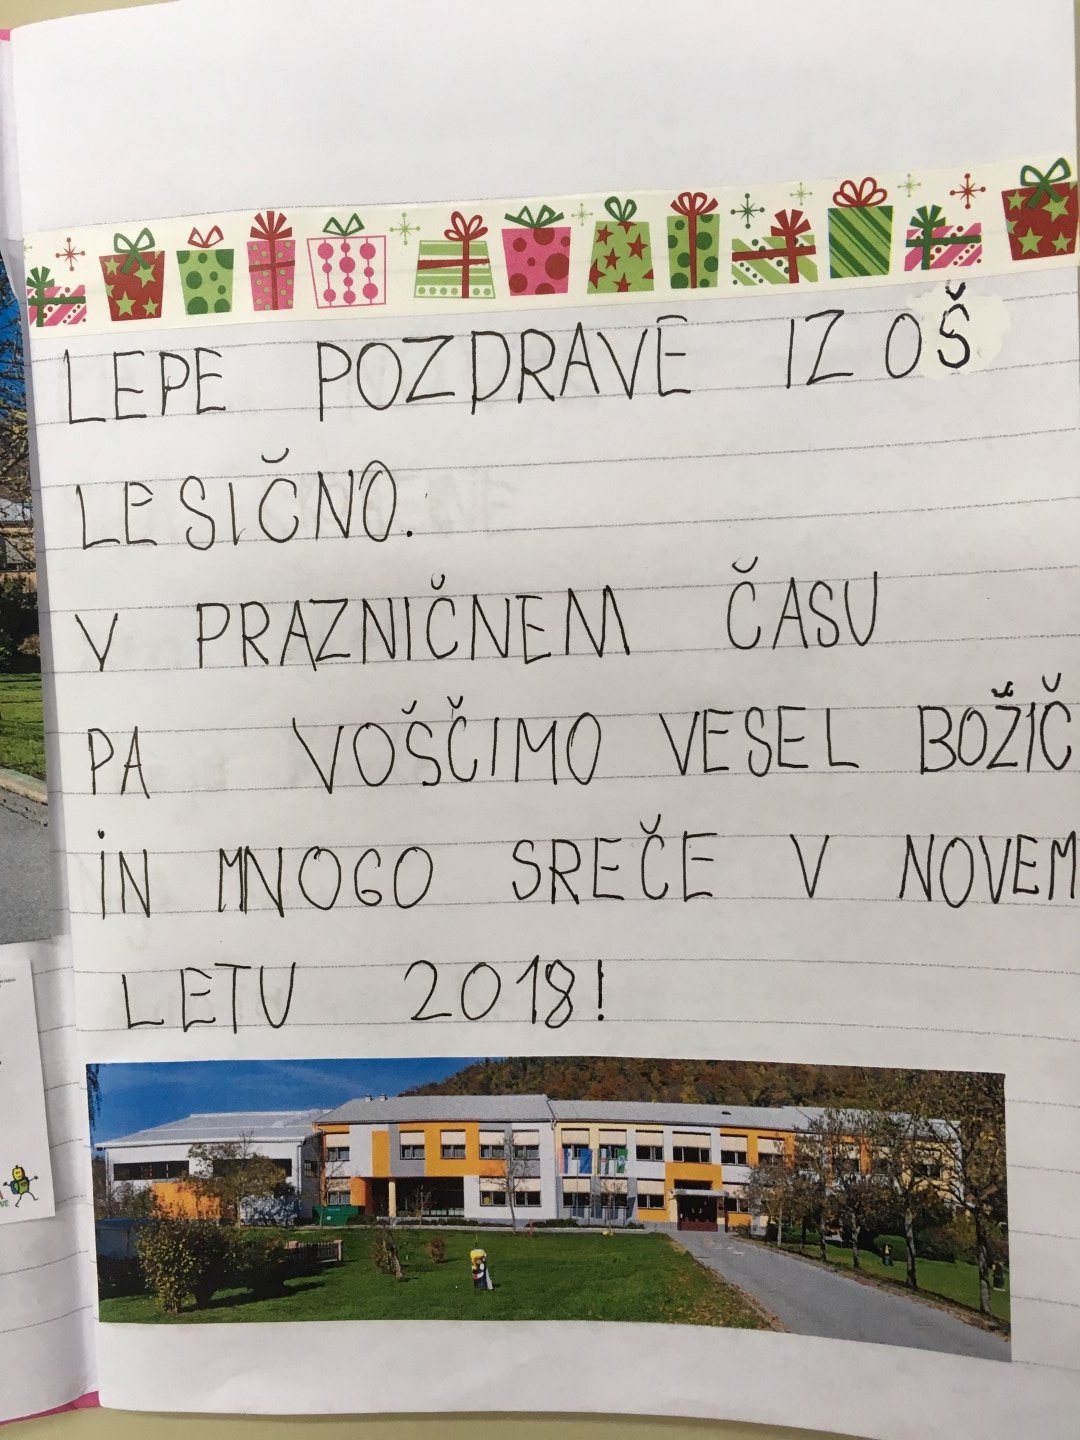 LEPE POZDRAVE IZ OŠ
LESIČNO.
V PRAZNIČNEM ČASU
PA VOŠČIMO VESEL BOŽIČ
IN MNOGO SREČE V NOVEM
LETU 2018!